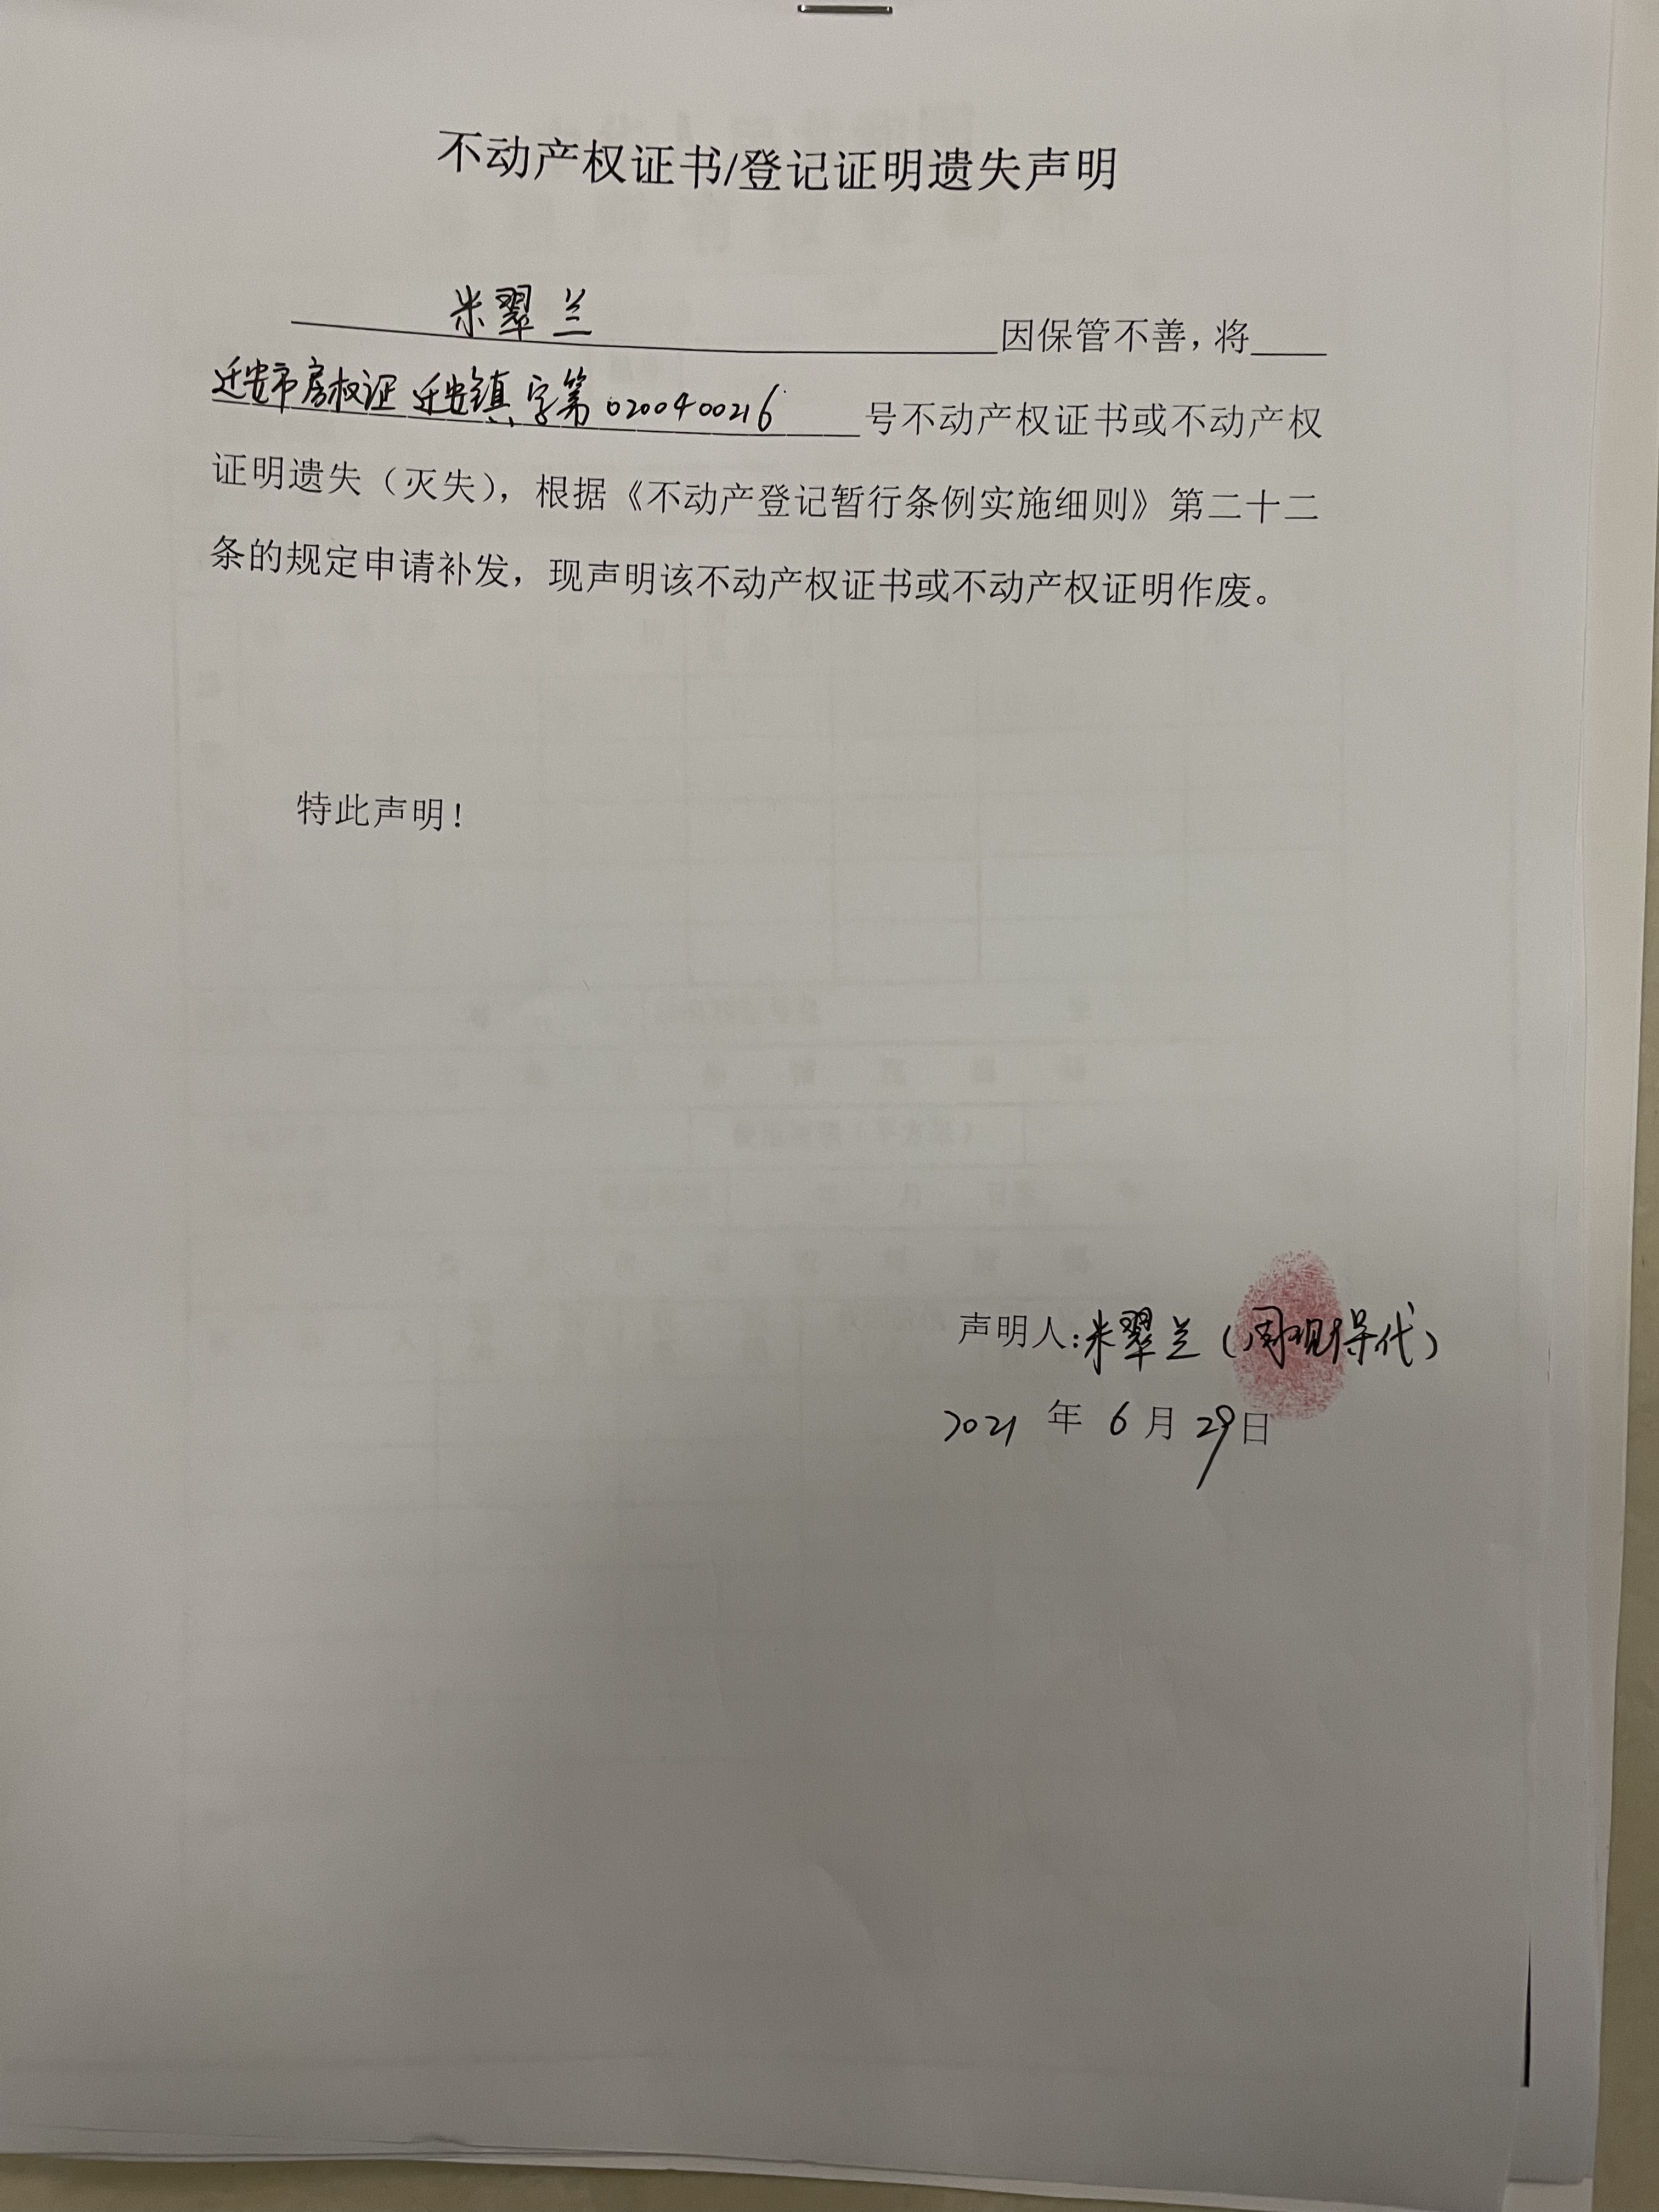 不动产权证书/登记证明遗失声明
米翠兰因保管不善，将
迁安市房权证 迁安镇字第0200400216号不动产权证书或不动产权
证明遗失（灭失），根据《不动产登记暂行条例实施细则》第二十二
条的规定申请补发，现声明该不动产权证书或不动产权证明作废。
特此声明！
声明人：米翠兰（周现得代）
2021年6月29日